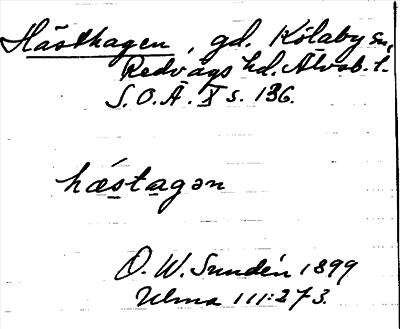 Hästhagen, gd. Kölaby sn,
Redvägs hd. Älvsb. l.
S. O. Ä. X s. 136.
hǽstagən
O. W. Sundén 1899
Ulma 111:273.